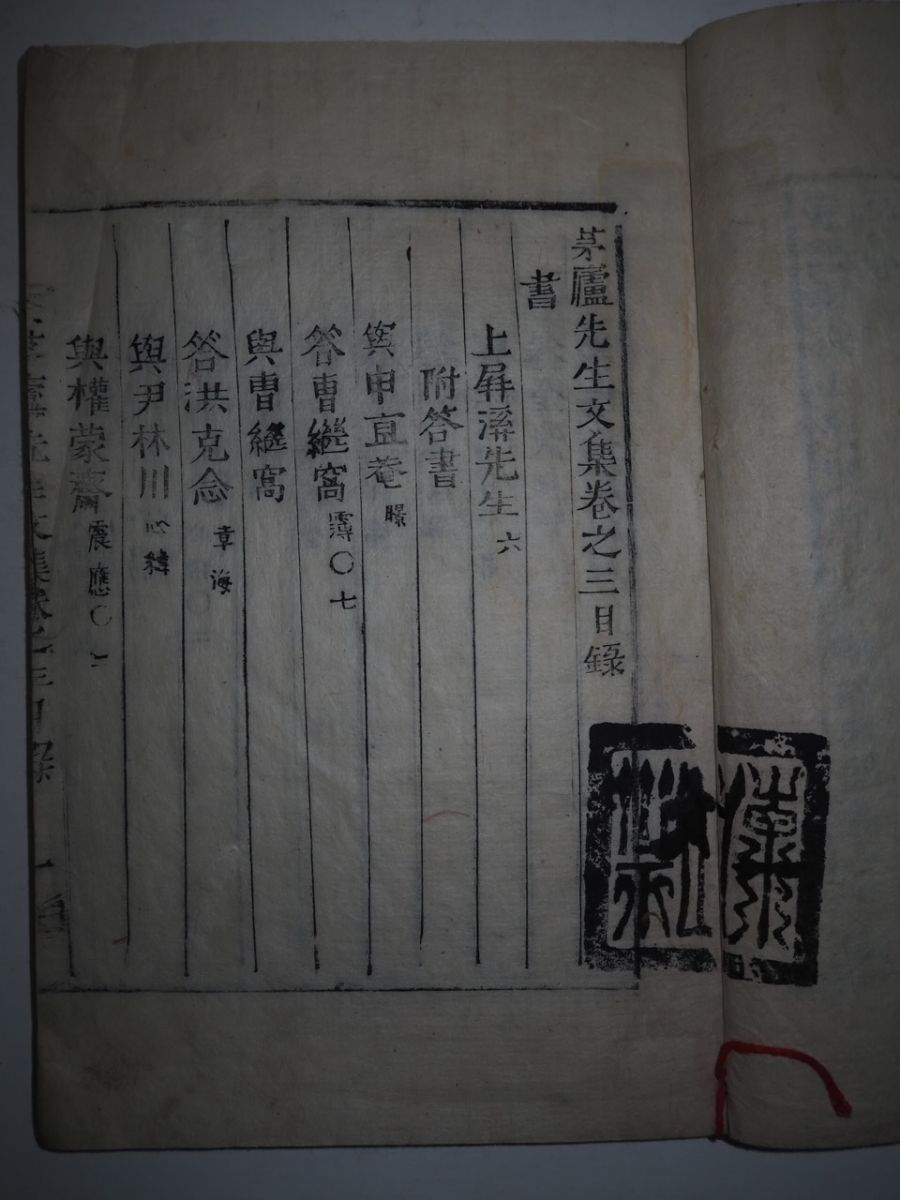 茅廬先生文集卷之三目錄
書
上屛溪先生 六
附答書
與申直菴 暻
答曹繼窩 霔〇七
與曹繼窩
答洪克念 章海
與尹林川 心緯
與權蒙齋 震應〇
茅廬先生文集卷之三目錄 一